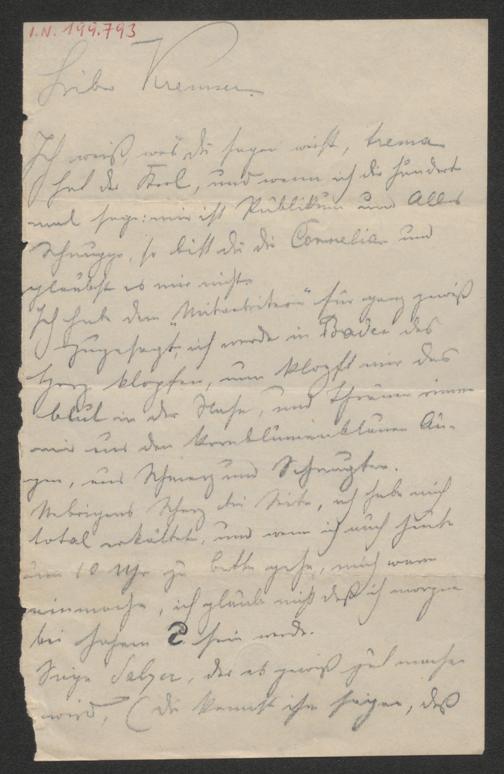 I.N. 199.793
Lieber Kremser.
Ich weiß, was du sagen wirst, trema
hat der Kerl, und wenn ich dir hundert
mal sage: mir ist Publikum und Alles
Schnuppe, so bist du die Cornelia und
glaubst es mir nicht.
Ich habe dem "Mitarbeiter" für ganz gewiß
zugesagt, ich werde in Baden das
Herz klopfen, nun klopft mir das
Blut in der Nase, und Thränen rinnen
mir aus den kornblumenblauen Au-
gen, aus Schmerz und Schnupfen.
Uebrigens Scherz bei Seite, ich habe mich
total erkältet, und wenn ich auch heute
um 10 Uhr zu Bette gehe, mich warm
einmache, ich glaube nicht daß ich morgen
bei hohem C sein werde.
Sage Salzer, der es gewiß gut machen
wird, (du kannst ihm sagen, daß